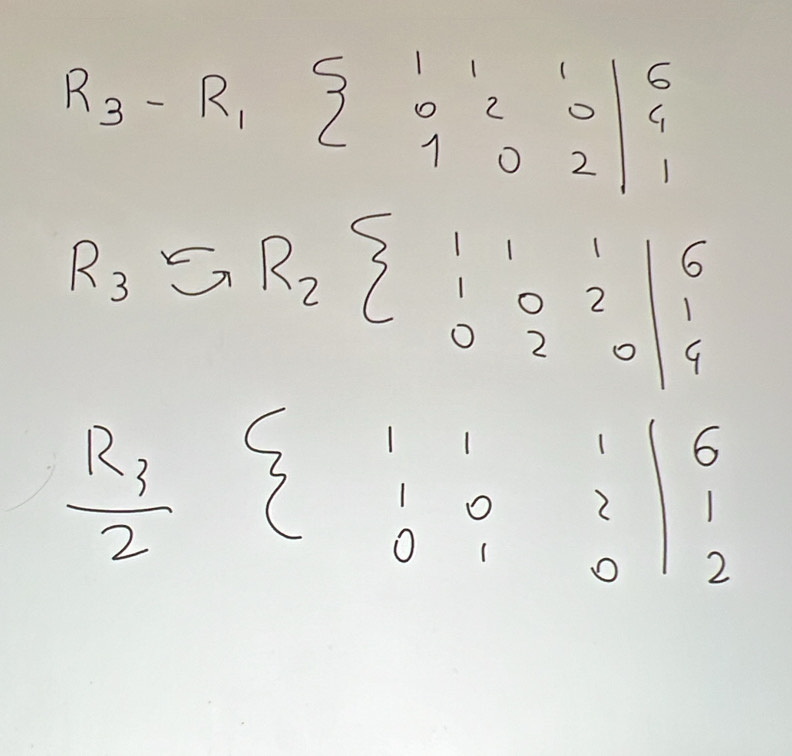 R₃ - R₁ { 1 1 1 | 6
0 2 0 | 4
1 0 2 | 1
R₃ ⇆ R₂ { 1 1 1 | 6
1 0 2 | 1
0 2 0 | 4
R₃/2 { 1 1 1 | 6
1 0 2 | 1
0 1 0 | 2